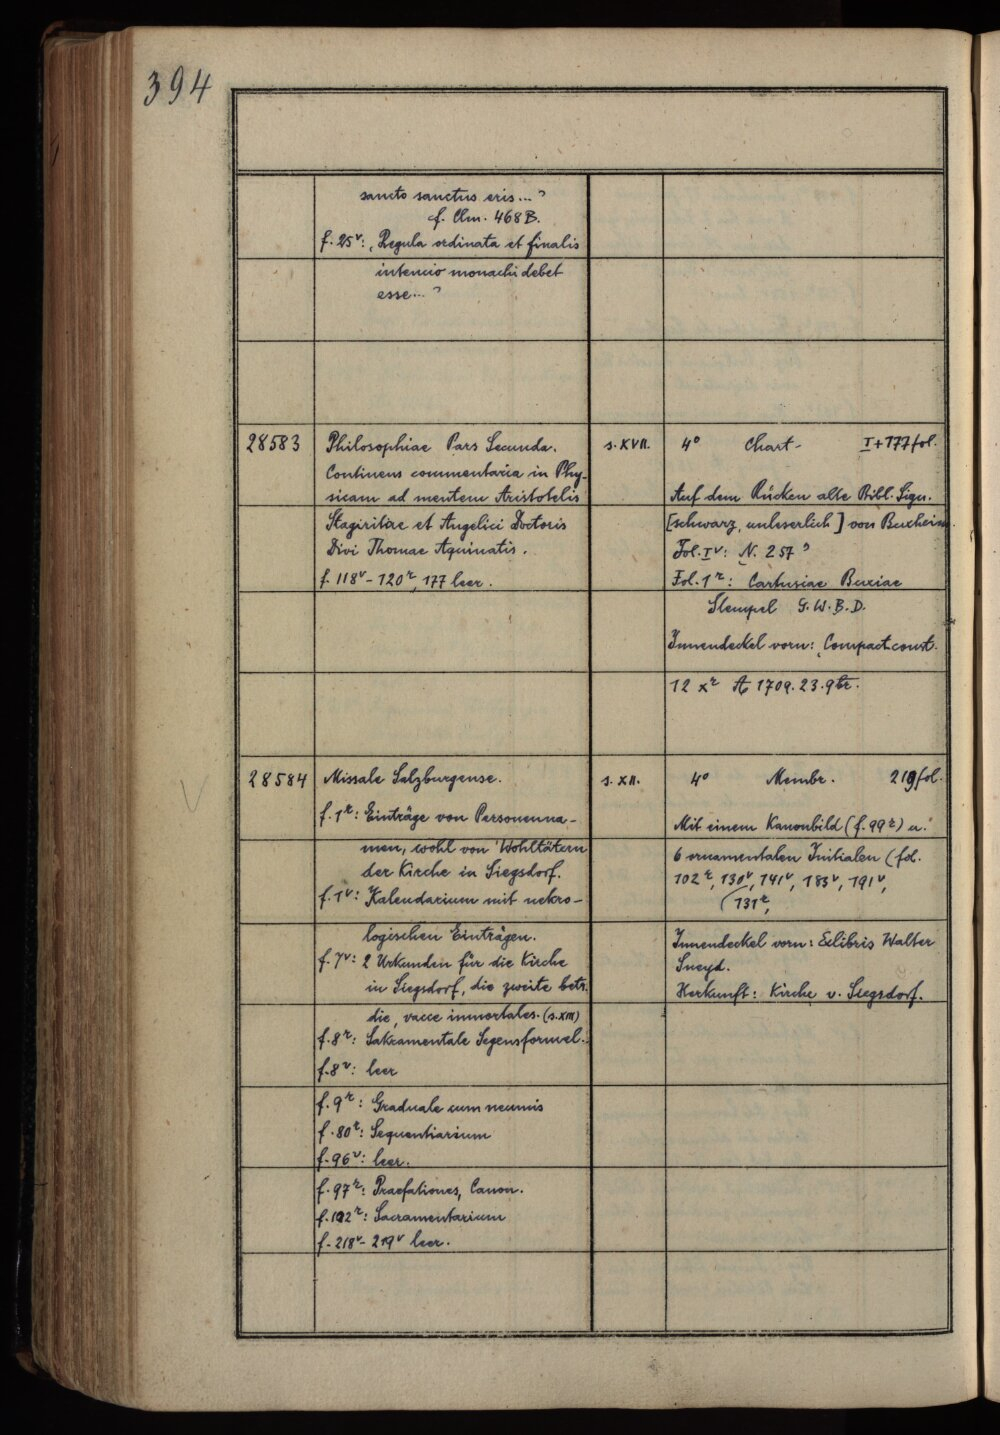 394
sancto sanctus eris...?
f. Clm. 468 B.
f. 25v: „Regula ordinata et finalis
intencio monachi debet
esse...?
28583
Philosophiae Pars Secunda.
Continens commentaria in Phy-
sicam ad mentem Aristotelis
Stagiritae et Angelici Doctoris
Divi Thomae Aquinatis.
f. 118v - 120r, 177 leer.
s. XVII.
4° Chart. I + 177 fol.
Auf dem Rücken alte Bibl. Sign.
[schwarz, unleserlich] von Buxheim.
Fol. Iv: N. 257?
Fol. 1r: Cartusiae Buxiae
Stempel G.W.B.D.
Innendeckel vorn: „Compact. const.
12 xr A 1709. 23. 9br.
28584
Missale Salzburgense.
f. 1r: Einträge von Personenna-
men, wohl von Wohltätern
der Kirche in Siegsdorf.
f. 1v: Kalendarium mit nekro-
logischen Einträgen.
f. 7v: 2 Urkunden für die Kirche
in Siegsdorf, die zweite betr.
die „vacce inmortales. (s. XIII)
f. 8r: Sakramentale Segensformel.
f. 8v: leer
f. 9r: Graduale cum neumis
f. 80r: Sequentiarium
f. 96v: leer.
f. 97r: Praefationes, Canon.
f. 102r: Sacramentarium
f. 218v - 219v leer.
s. XII.
4° Membr. 219 fol.
Mit einem Kanonbild (f. 99r) u.
6 ornamentalen Initialen (fol.
102r, 130v, 141v, 183v, 191v,
131r,
Innendeckel vorn: Exlibris Walter
Sneyd.
Herkunft: Kirche v. Siegsdorf.